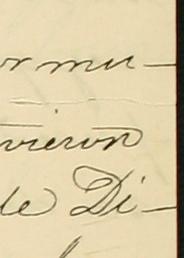 or mu-
vieron
de Di-